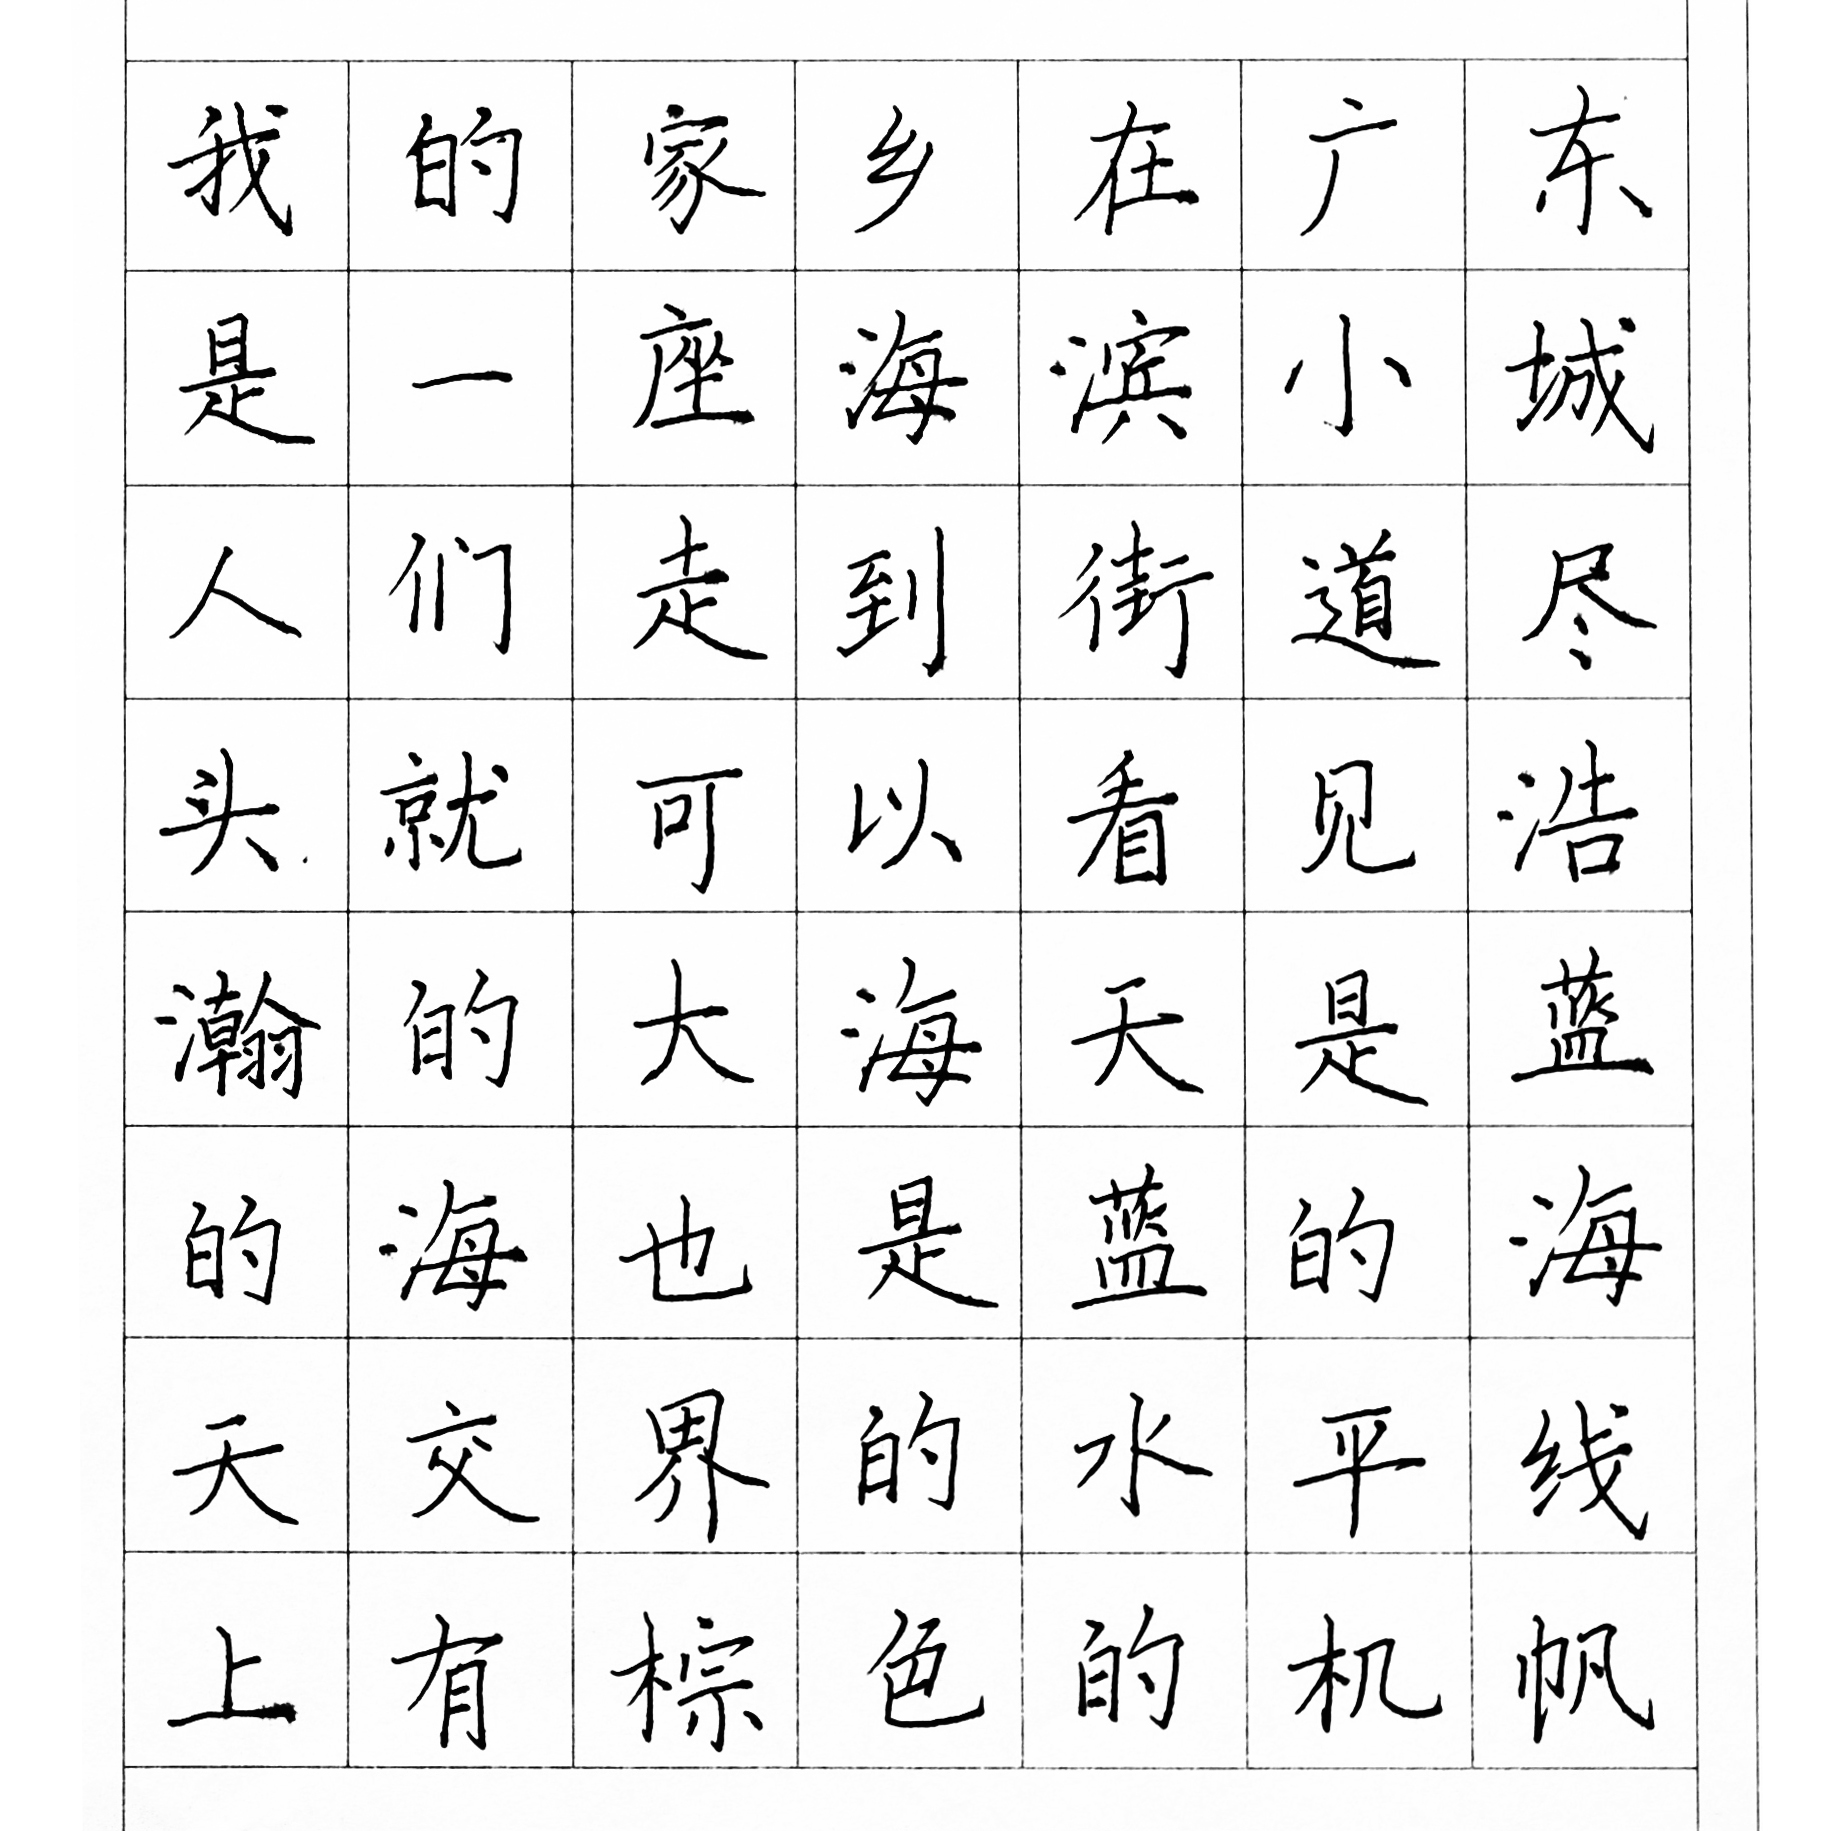 我的家乡在广东
是一座海滨小城
人们走到街道尽
头就可以看见浩
瀚的大海天是蓝
的海也是蓝的海
天交界的水平线
上有棕色的机帆